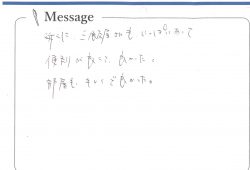 Message
近くに、三個所お店もいっぱいあって
便利が良くて、良かった。
部屋も、キレイで良かった。